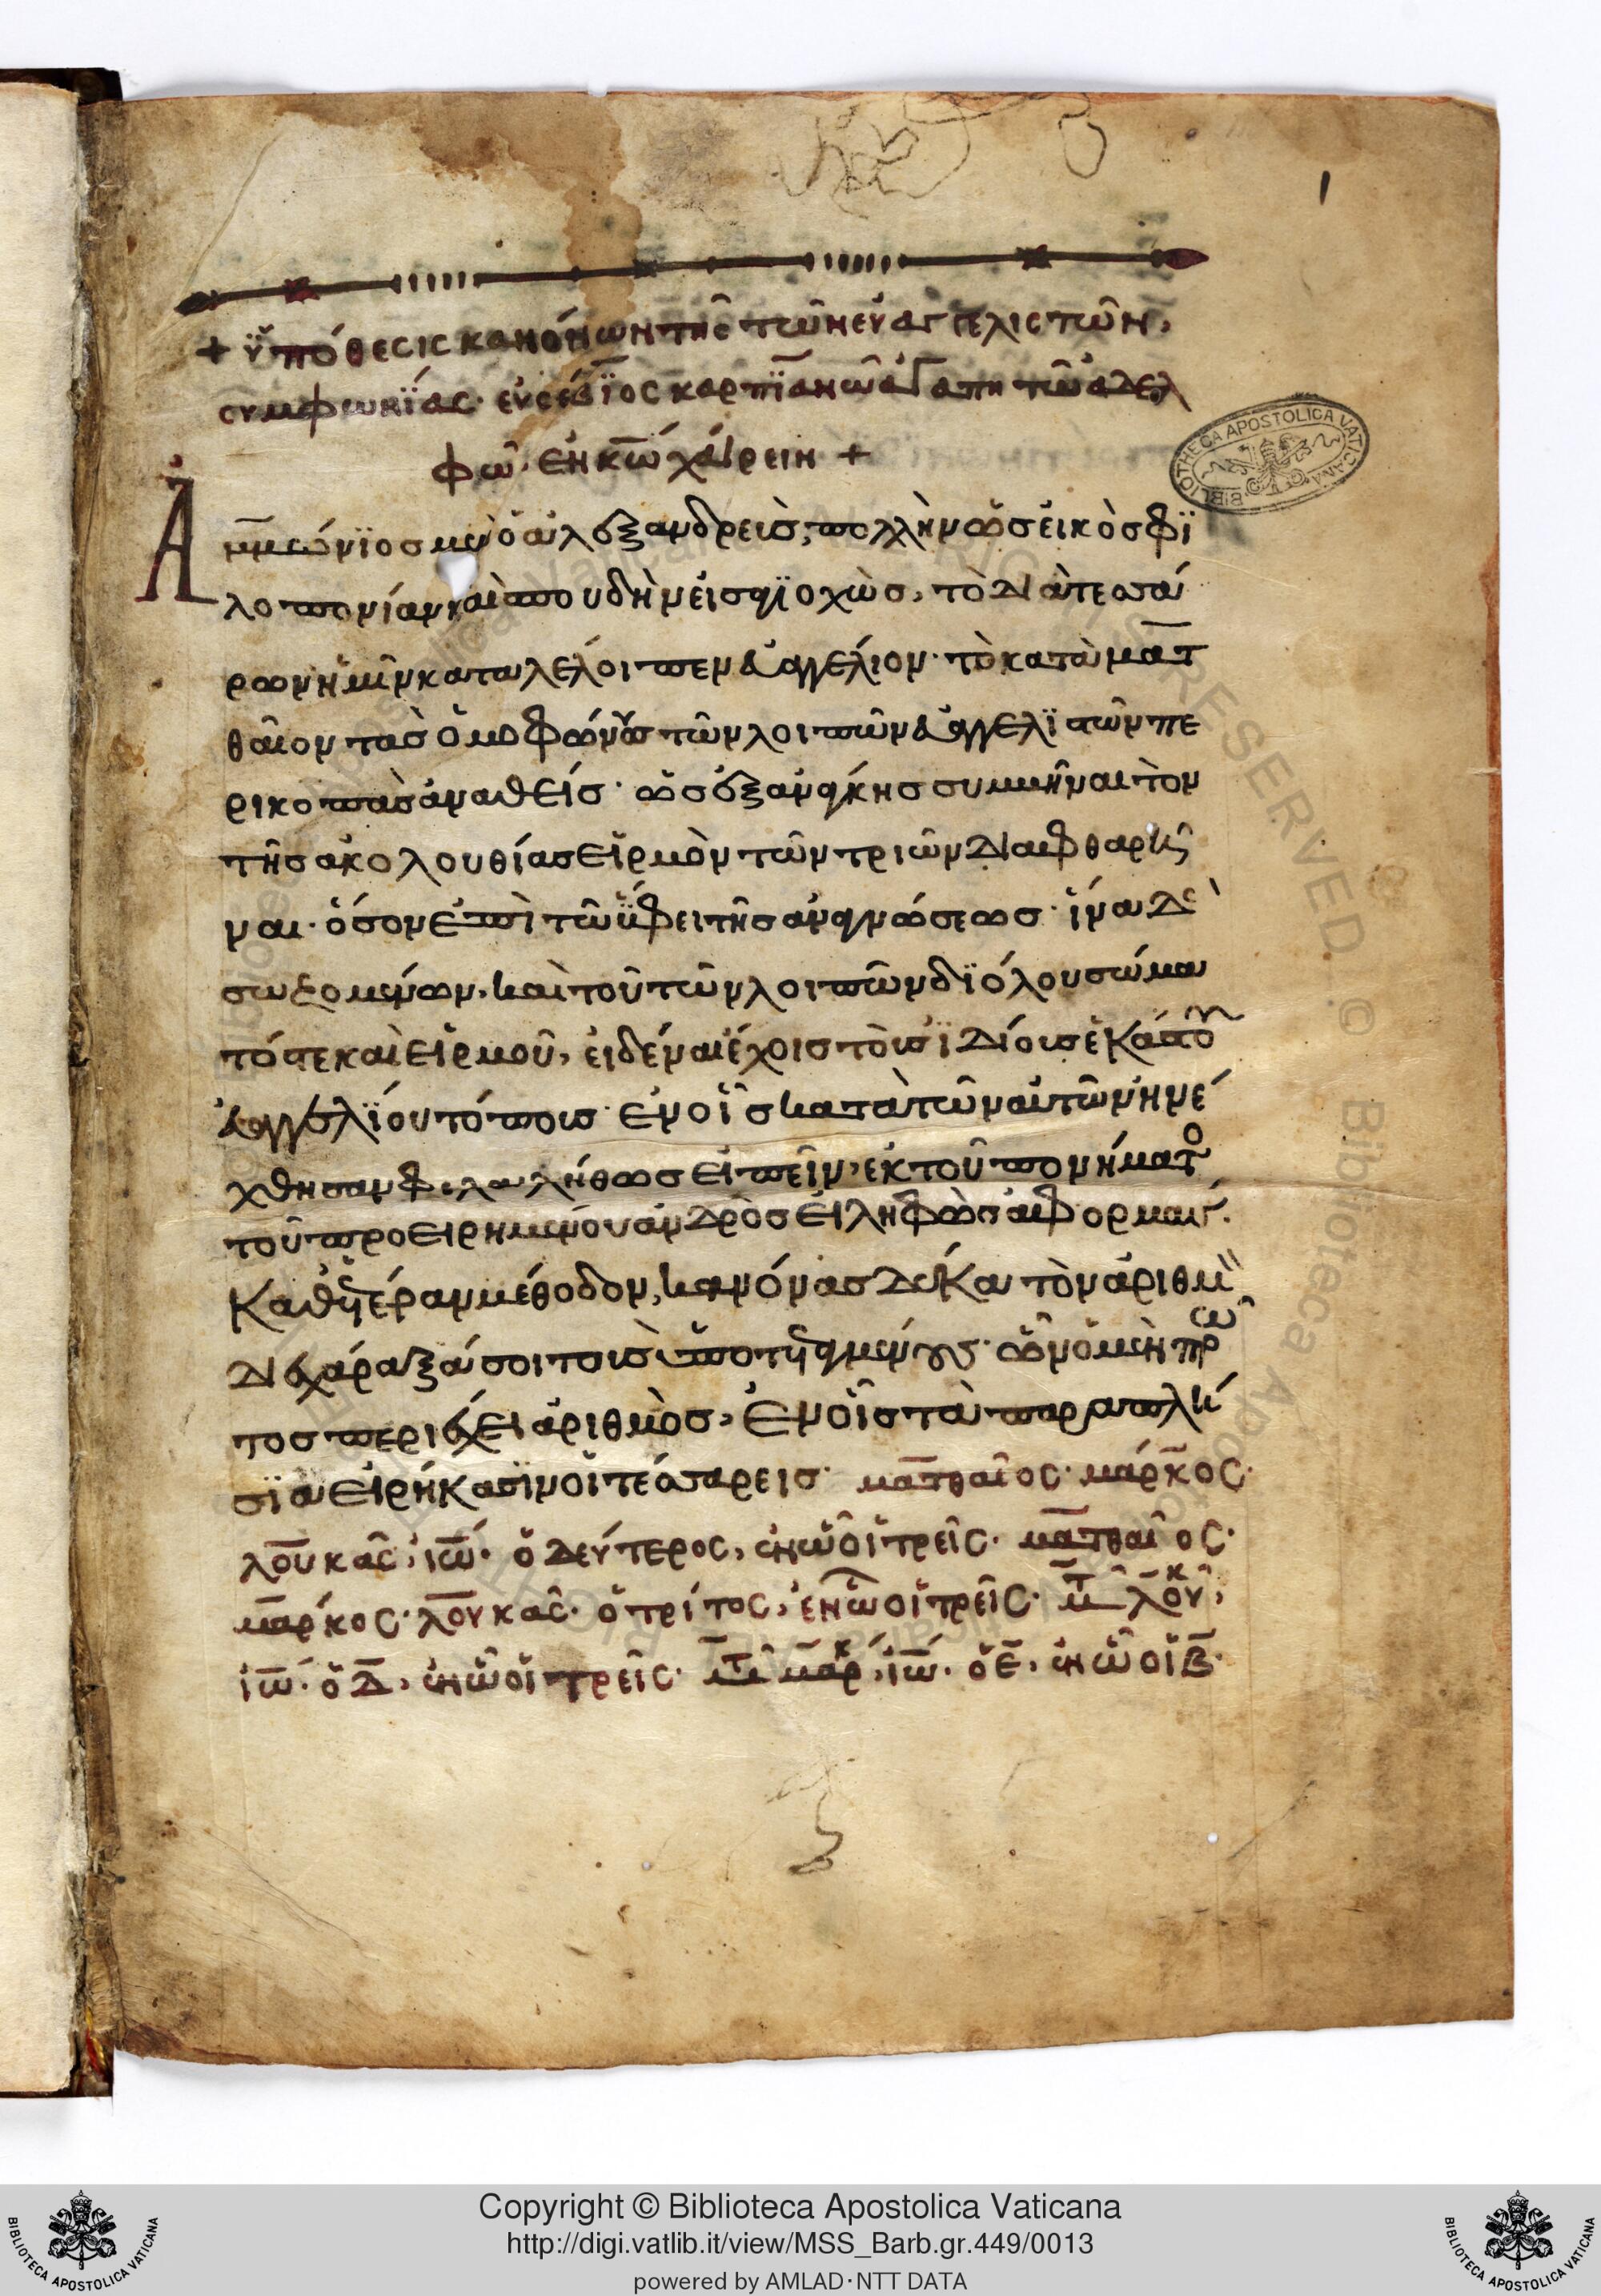 1
+ ὑπόθεσις κανόνων τῆς τῶν εὐαγγελιστῶν,
συμφωνΐας· εὐσέβϊος καρπϊανῶ ἀγαπητῶ ἀδελ
φῶ· ἐν κω χαίρειν +
Ἀμμώνϊος μὲν ὁ ἀλεξανδρεὺς, πολλὴν ὡς εἰκὸς φϊ
λοπονίαν καὶ σπουδὴν εἰσαγϊοχὼς, τὸ διὰ τεσσά
ρων ἡμῖν καταλέλοιπεν εὐαγγέλιον· τὸ κατὰ ματ
θαῖον τὰς ὁμοφώνους τῶν λοιπῶν εὐαγγελϊστῶν πε
ρικοπὰς παραθείς· ὡς ἐξ ἀνάγκης συμβῆναι τὸν
τῆς ἀκολουθίας εἱρμὸν τῶν τριῶν διαφθαρῆ
ναι· ὅσον ἐπὶ τῶ ὕφει τῆς ἀναγνώσεως· ἵνα δὲ
σωζομένων, καὶ τοῦ τῶν λοιπῶν δϊόλου σώμα
τός τε καὶ εἱρμοῦ, εἰδέναι ἔχοις τοὺς ἰδίους ἑκάστου
εὐαγγελΐου τόπους· ἐν οἷς κατὰ τῶν αὐτῶν ἠνέ
χθησαν φιλαλήθως εἰπεῖν, ἐκ τοῦ πονήματος
τοῦ προειρημένου ἀνδρὸς εἰληφὼς ἀφορμάς.
Καθ' ἑτέραν μέθοδον, κανόνας δέκα τὸν ἀριθμὸν
διεχάραξά σοι τοὺς ὑποτεταγμένους· ὧν ὁ μὲν πρῶ
τος περιέχει ἀριθμὸς, ἐν οἷς τὰ παραπλή
σϊα εἰρήκασϊν οἱ τέσσαρεις· ματθαῖος· μάρκος·
λουκᾶς, ἰω· ὁ δεύτερος, ἐν ὧ οἱ τρεῖς· ματθαῖος·
μαρκος· λουκᾶς· ὁ τρίτος, ἐν ὧ οἱ τρεῖς· μτ λουκ,
ἰω· ὁ δ, ἐν ὧ οἱ τρεῖς· μτ μαρκ, ἰω· ὁ ε, ἐν ὧ οἱ β·
BIBLIOTHECA APOSTOLICA VATICANA
Copyright © Biblioteca Apostolica Vaticana
http://digi.vatlib.it/view/MSS_Barb.gr.449/0013
powered by AMLAD·NTT DATA
BIBLIOTECA APOSTOLICA VATICANA
BIBLIOTECA APOSTOLICA VATICANA